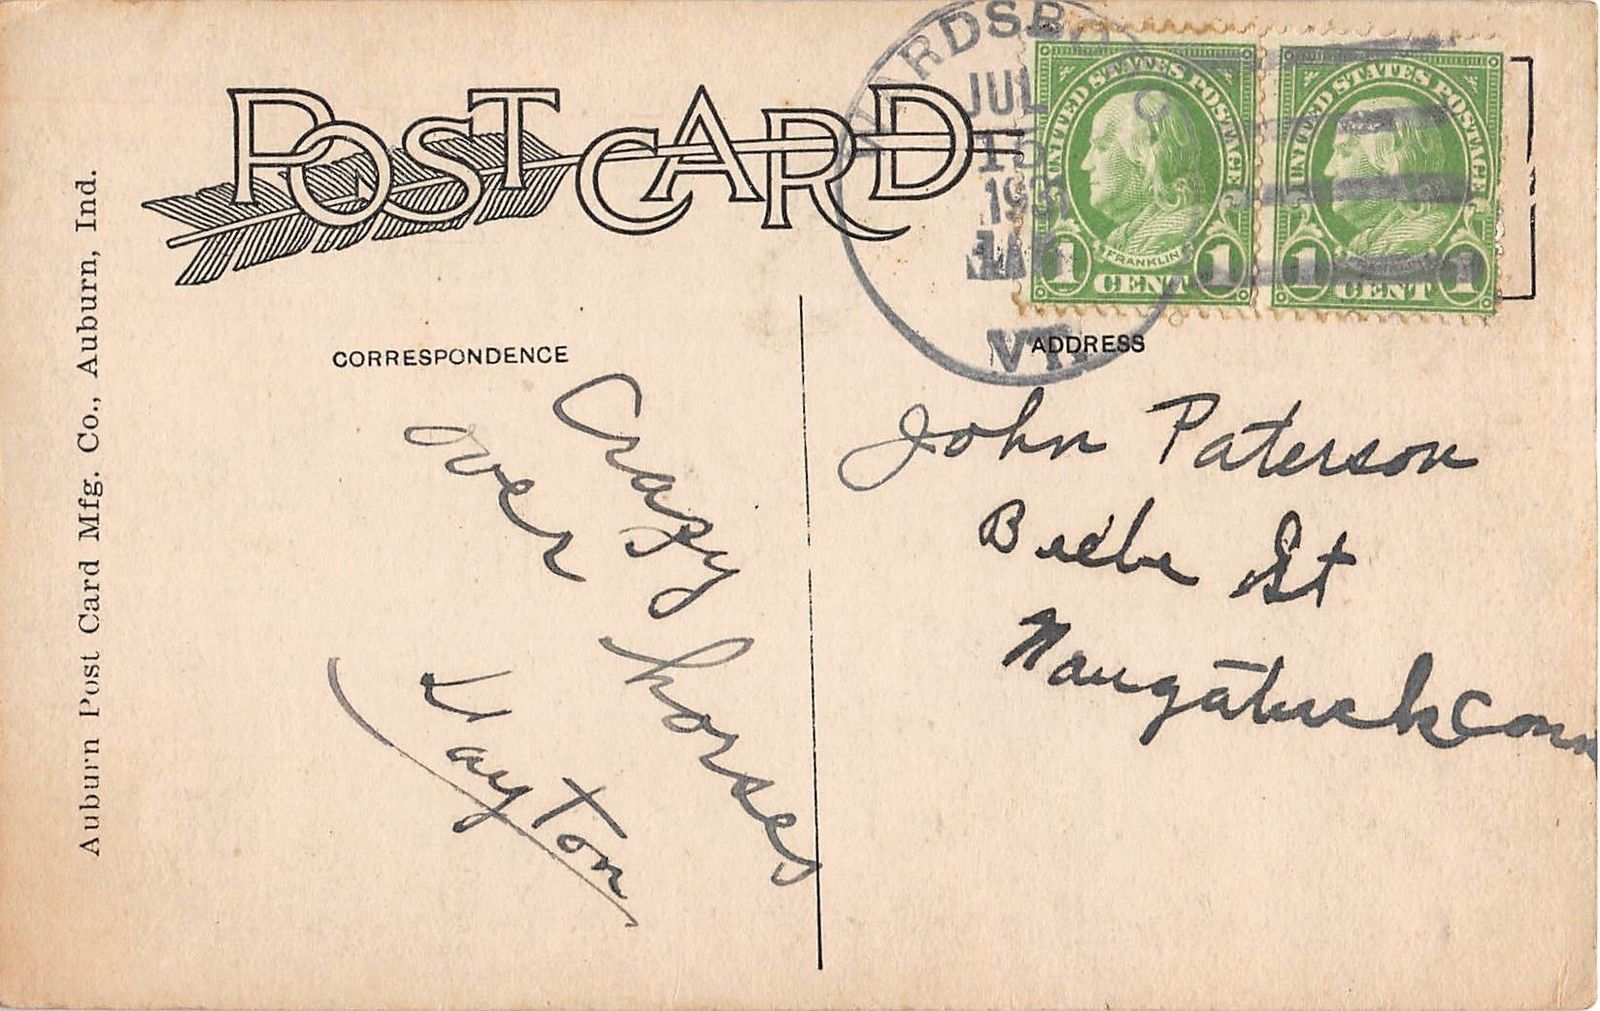 POST CARD
Auburn Post Card Mfg. Co., Auburn, Ind.
CORRESPONDENCE
ADDRESS
JUL
15
1931
VT.
UNITED STATES POSTAGE
FRANKLIN
1 CENT 1
UNITED STATES POSTAGE
1 CENT 1
Crazy horses
over
John Paterson
Beebe St
Naugatuck Conn